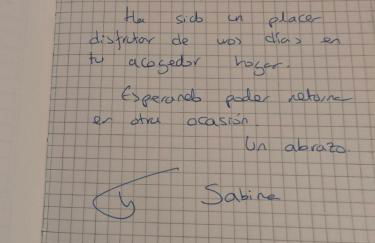 Ha sido un placer
disfrutar de unos días en
tu acogedor hogar.
Esperando poder retornar
en otra ocasión.
Un abrazo.
Sabine